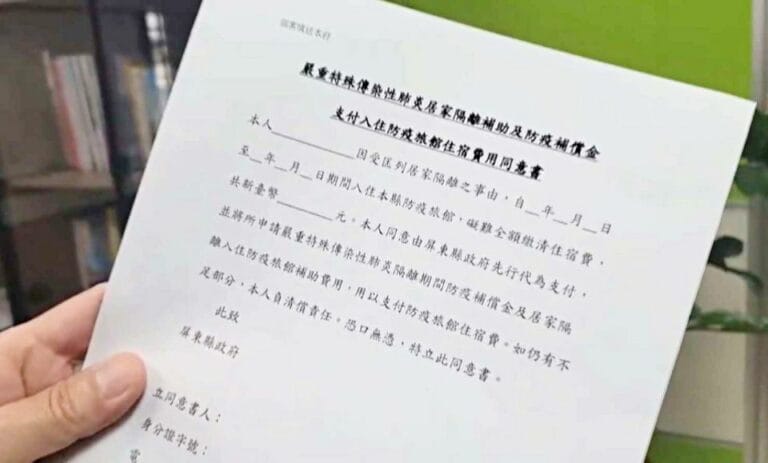 嚴重特殊傳染性肺炎居家隔離補助及防疫補償金
支付入住防疫旅館住宿費用同意書
本人__________因受匡列居家隔離之事由，自__年__月__日
至__年__月__日期間入住本縣防疫旅館，礙難全額繳清住宿費，
共新臺幣________元。本人同意由屏東縣政府先行代為支付，
並將所申請嚴重特殊傳染性肺炎隔離期間防疫補償金及居家隔
離入住防疫旅館補助費用，用以支付防疫旅館住宿費。如仍有不
足部分，本人自清償責任。恐口無憑，特立此同意書。
此致
屏東縣政府
立同意書人：
身分證字號：
電